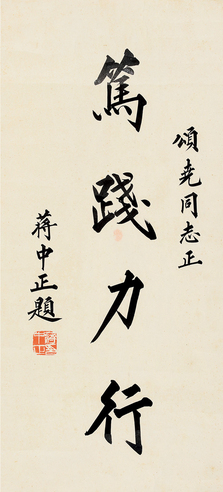 頌堯同志正
篤踐力行
蔣中正題